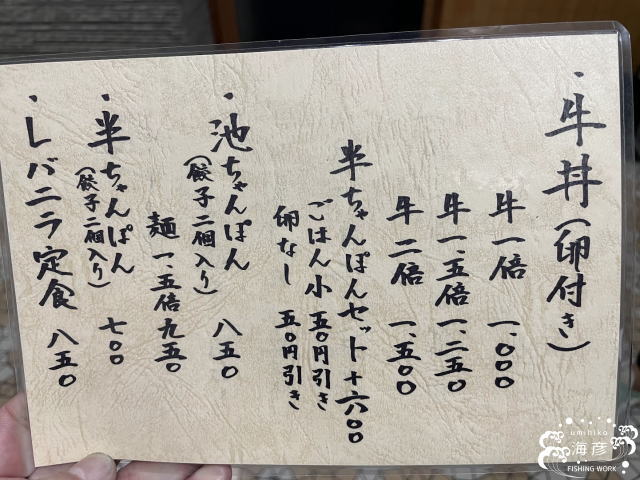 ・牛丼（卵付き）
牛一倍 一、〇〇〇
牛一、五倍 一、二五〇
牛二倍 一、五〇〇
半ちゃんぽんセット+六〇〇
ごはん小 五〇円引き
卵なし 五〇円引き
・池ちゃんぽん 八五〇
（餃子二個入り）
麺一、五倍 九五〇
・半ちゃんぽん 七〇〇
（餃子二個入り）
・レバニラ定食 八五〇
umihiko
海彦
FISHING WORK